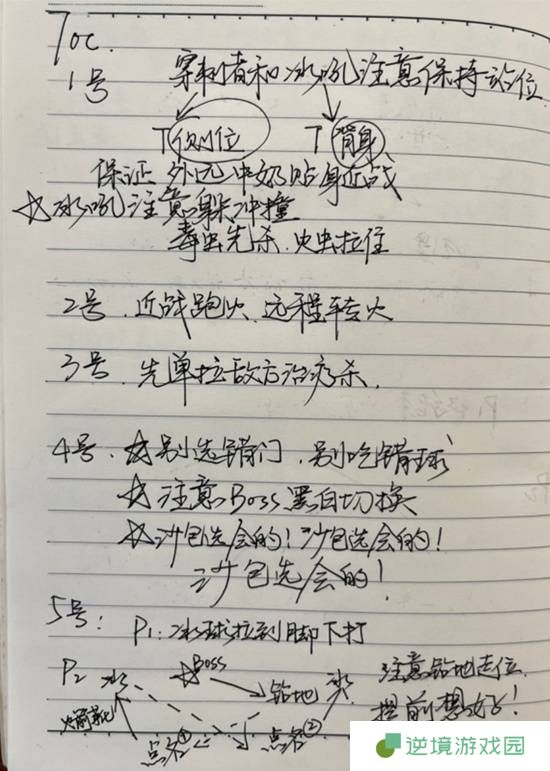 Toc.
1号 穿刺者和冰吼注意保持站位
T侧位 T背身
保证 外远中奶贴身近战
☆冰吼注意躲冲撞
毒虫先杀.火虫拉住
2号.近战跑火、远程转火
3号.先单拉敌方治疗杀.
4号.☆别选错门、别吃错球
☆注意Boss黑白切换
☆沙包选会的！沙包选会的！
沙包选会的！
5号： P1:冰球拉到脚下打
P2 冰 ☆Boss 钻地 冰 注意钻地走位
火箭靴 点名① 点名② 提前想好！
逆境游戏园